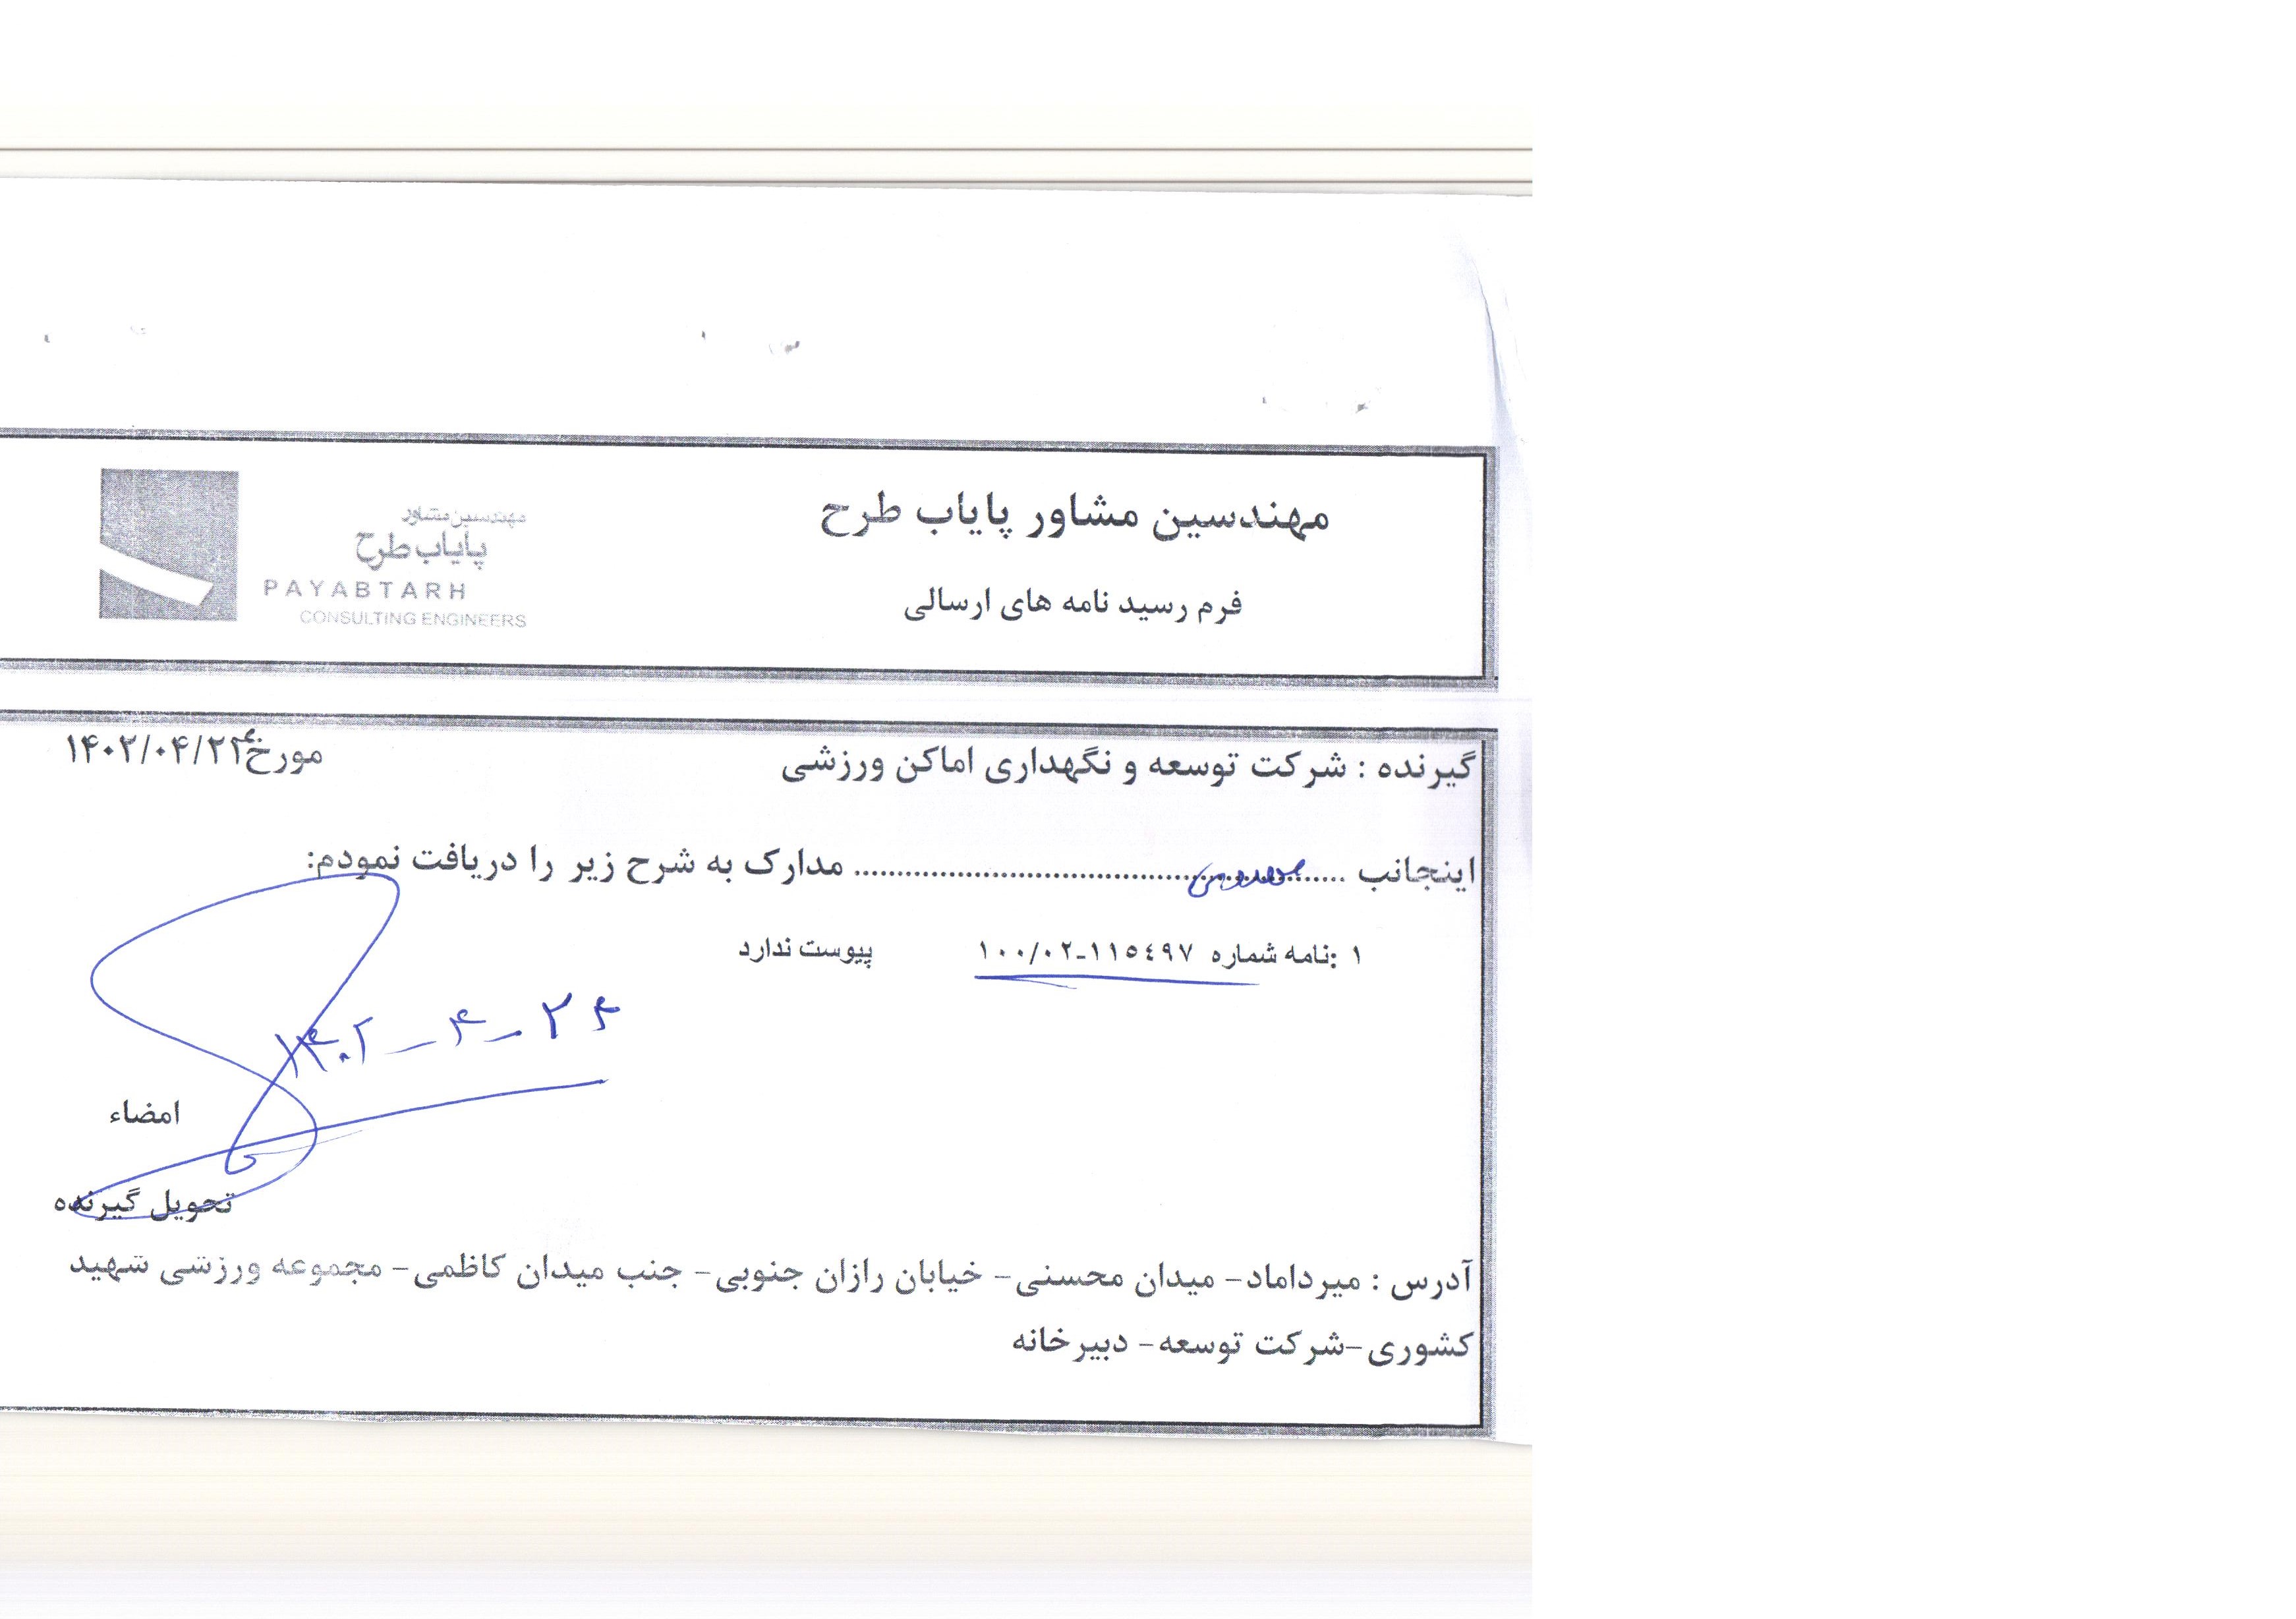 مهندسین مشاور پایاب طرح
فرم رسید نامه های ارسالی
مهندسین مشاور
پایاب طرح
PAYABTARH
CONSULTING ENGINEERS
گیرنده : شرکت توسعه و نگهداری اماکن ورزشی
مورخ ۱۴۰۲/۰۴/۲۴
اینجانب ........................................................ مدارک به شرح زیر را دریافت نمودم:
۱ :نامه شماره ۱۰۰/۰۲-۱۱۵٤۹۷ پیوست ندارد
۱۴۰۲-۴-۲۴
امضاء
تحویل گیرنده
آدرس : میرداماد- میدان محسنی- خیابان رازان جنوبی- جنب میدان کاظمی- مجموعه ورزشی شهید
کشوری-شرکت توسعه- دبیرخانه